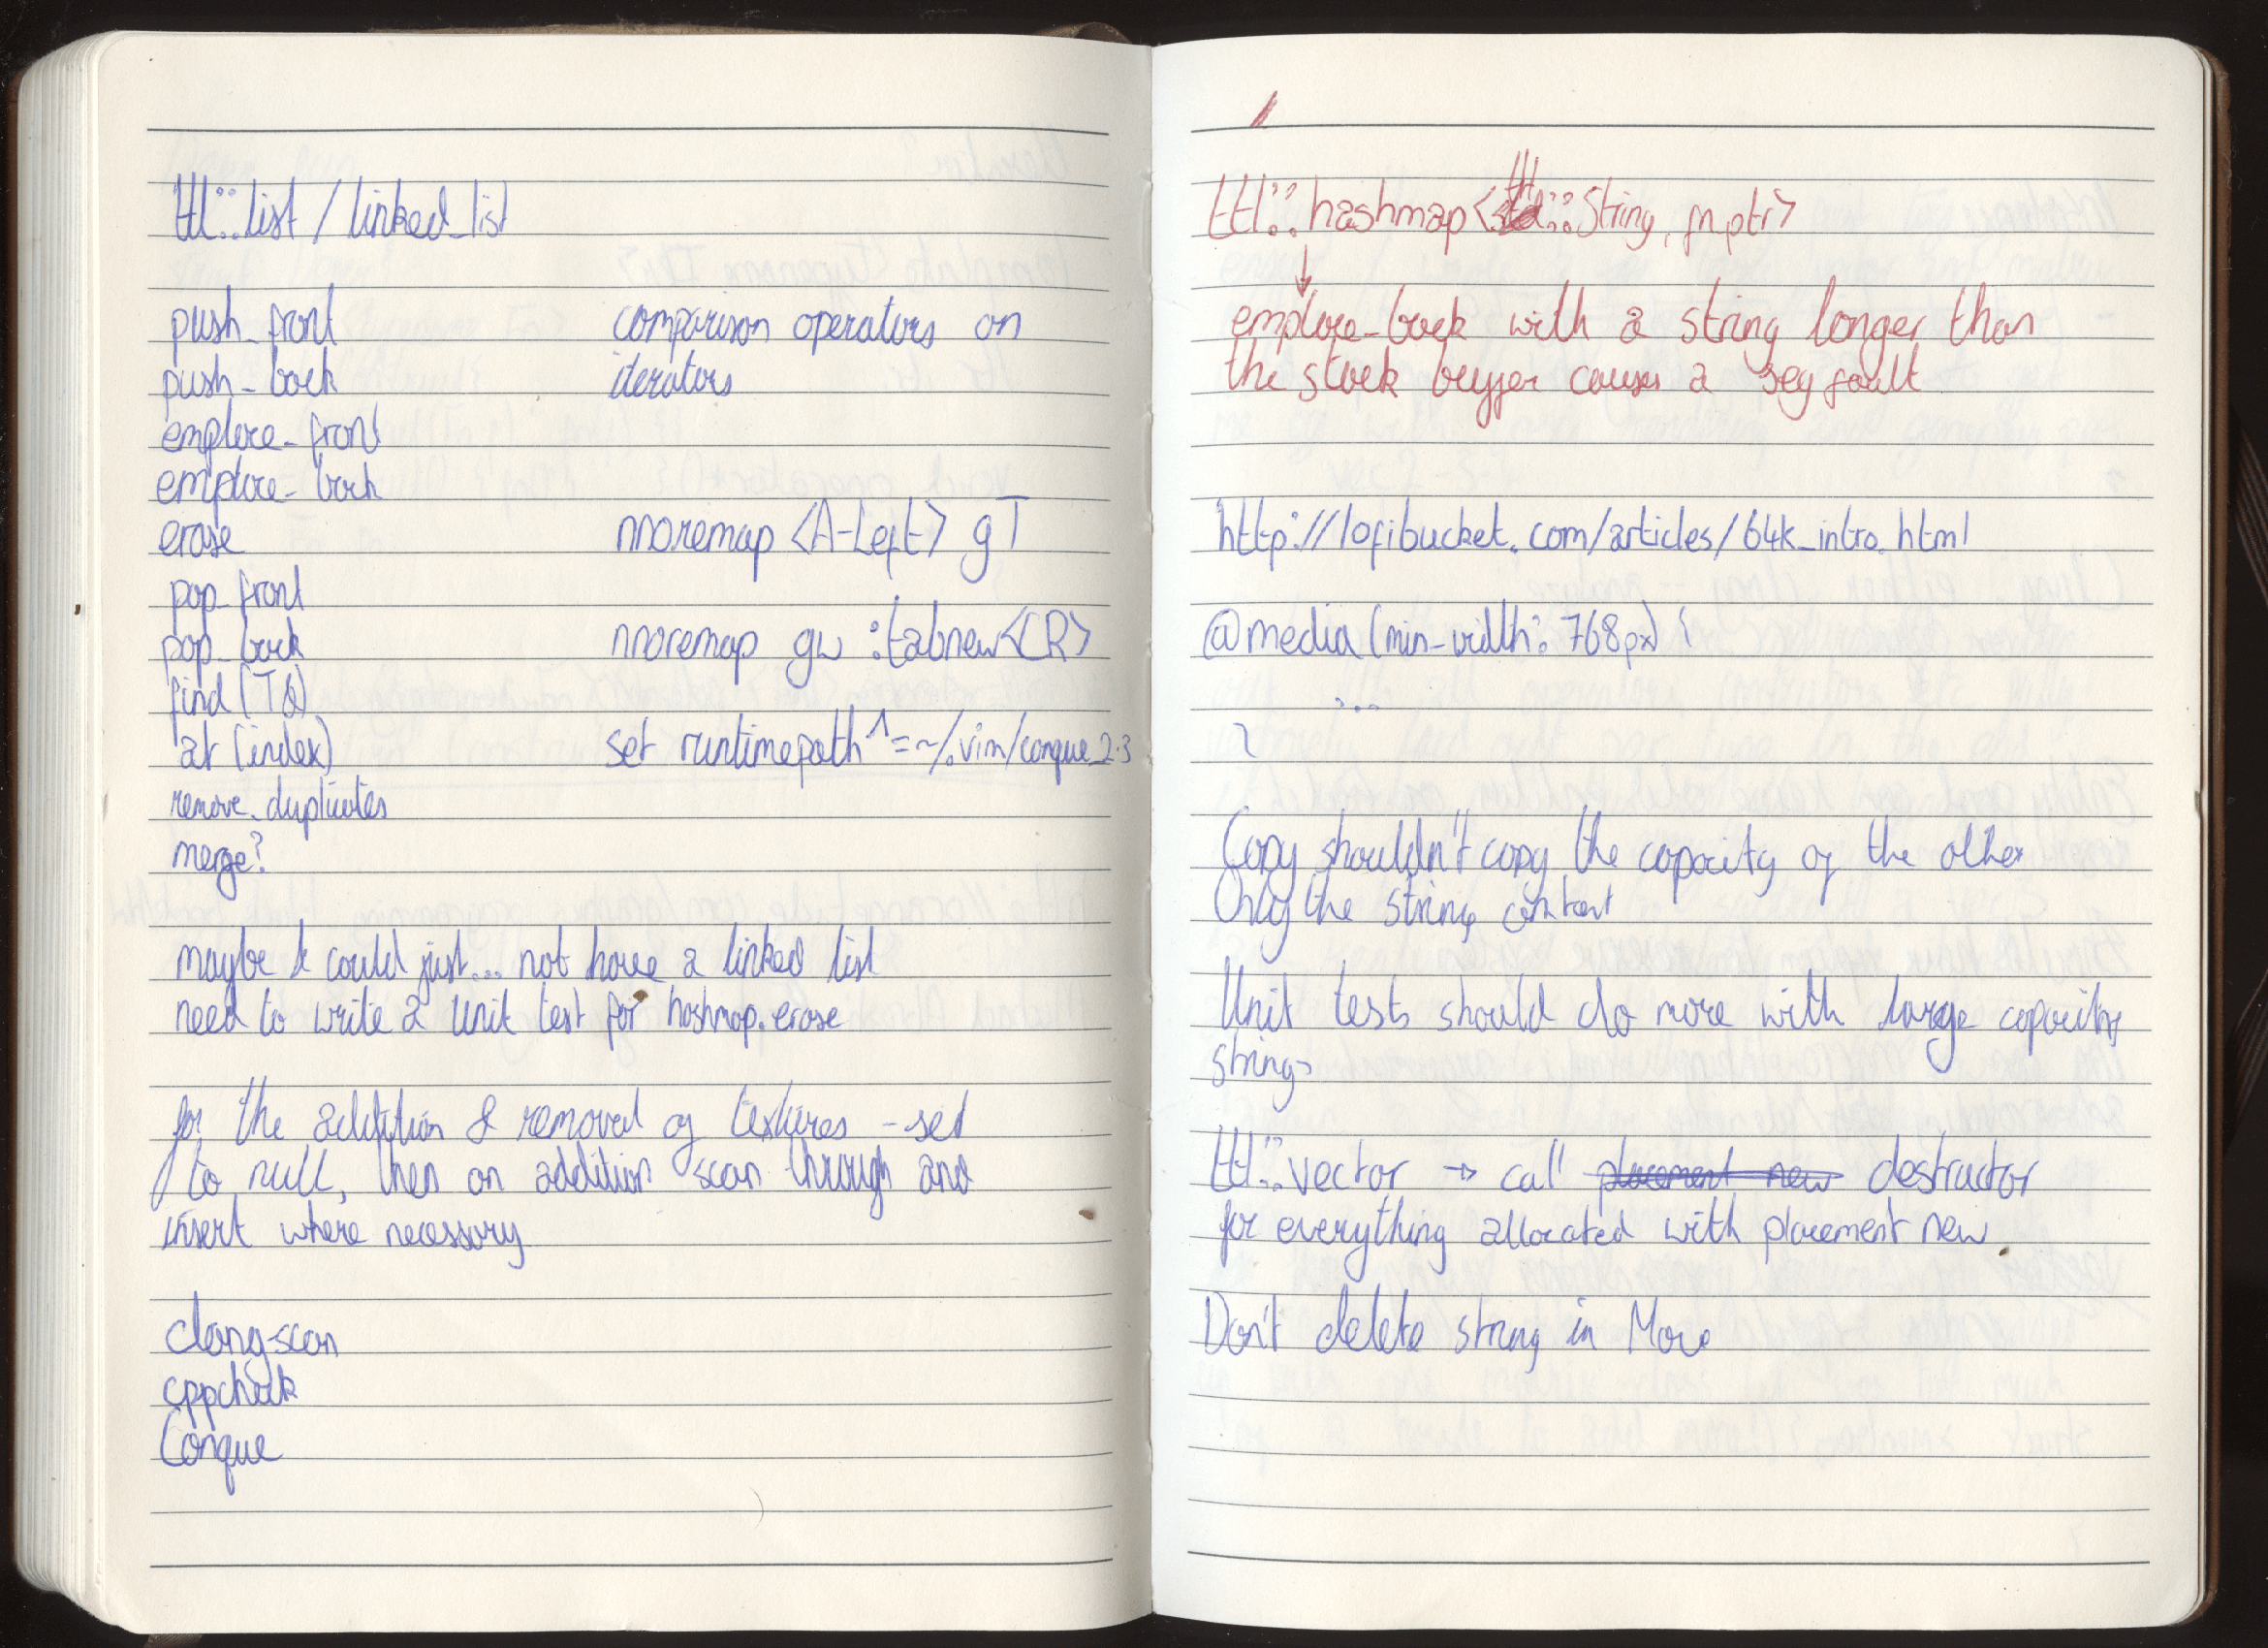 ttl::list / linked_list
push_front
push_back
emplace_front
emplace_back
erase
pop_front
pop_back
find (T&)
at (index)
remove_duplicates
merge?
comparison operators on
iterators
nnoremap <A-Left> gT
nnoremap gw :tabnew<CR>
set runtimepath^=~/.vim/conque_2.3
maybe I could just... not have a linked list
need to write a unit test for hashmap.erase
for the addition & removal of textures - set
to null, then on addition scan through and
insert where necessary
clang scan
cppcheck
Conque
ttl::hashmap<ttl::string, fn_ptr>
↓
emplace_back with a string longer than
the stack buffer causes a seg fault
http://lofibucket.com/articles/64k_intro.html
@media (min-width: 768px) {
...
}
Copy shouldn't copy the capacity of the other
Only the string content
Unit tests should do more with large capacity
strings
ttl::vector → call placement new destructor
for everything allocated with placement new.
Don't delete string in Move